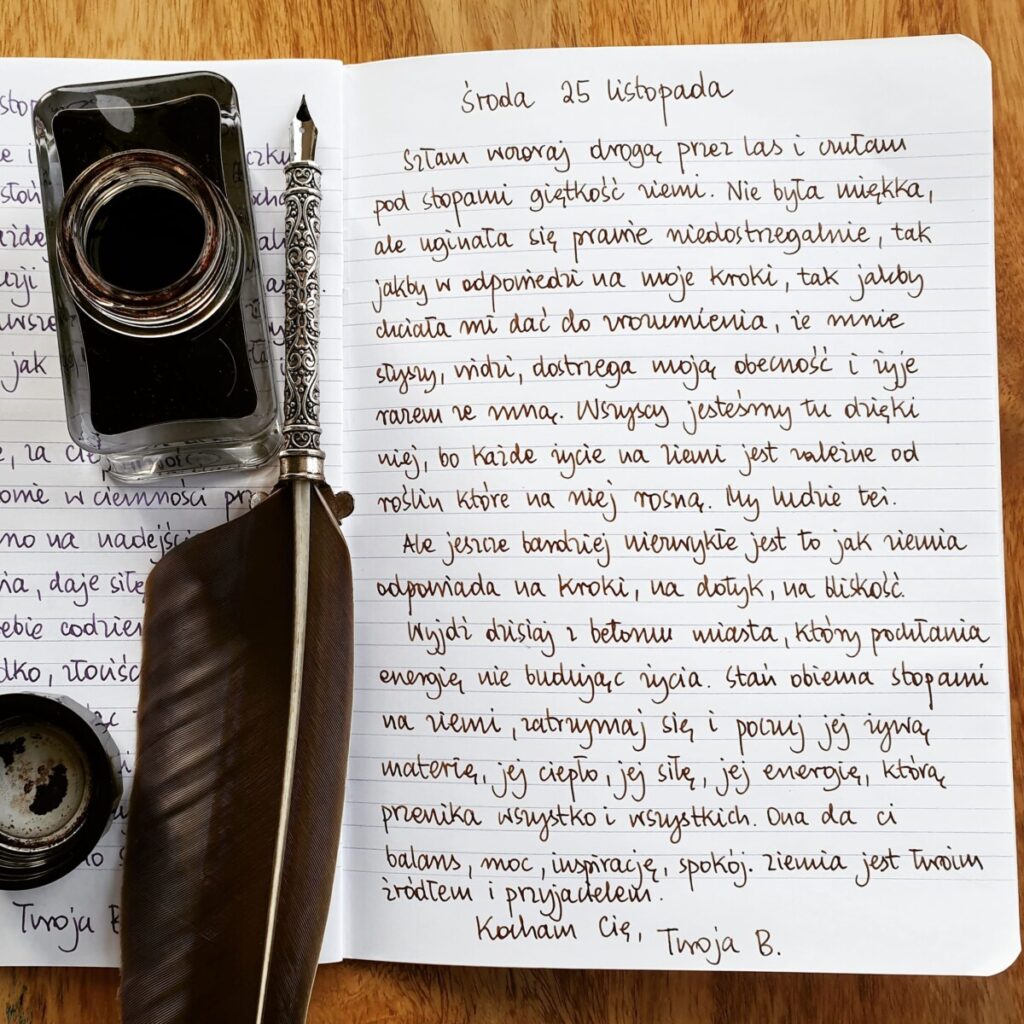 i
jak
za
w ciemności
na
daje siłę
Twoja
Środa 25 listopada
Szłam wczoraj drogą przez las i czułam
pod stopami giętkość ziemi. Nie była miękka,
ale uginała się prawie niedostrzegalnie, tak
jakby w odpowiedzi na moje kroki, tak jakby
chciała mi dać do zrozumienia, że mnie
słyszy, widzi, dostrzega moją obecność i żyje
razem ze mną. Wszyscy jesteśmy tu dzięki
niej, bo każde życie na ziemi jest zależne od
roślin które na niej rosną. My ludzie też.
Ale jeszcze bardziej niezwykłe jest to jak ziemia
odpowiada na kroki, na dotyk, na bliskość.
Wyjdź dzisiaj z betonu miasta, który pochłania
energię nie budując życia. Stań obiema stopami
na ziemi, zatrzymaj się i poczuj jej żywą
materię, jej ciepło, jej siłę, jej energię, którą
przenika wszystko i wszystkich. Ona da ci
balans, moc, inspirację, spokój. Ziemia jest Twoim
źródłem i przyjacielem.
Kocham Cię,
Twoja B.